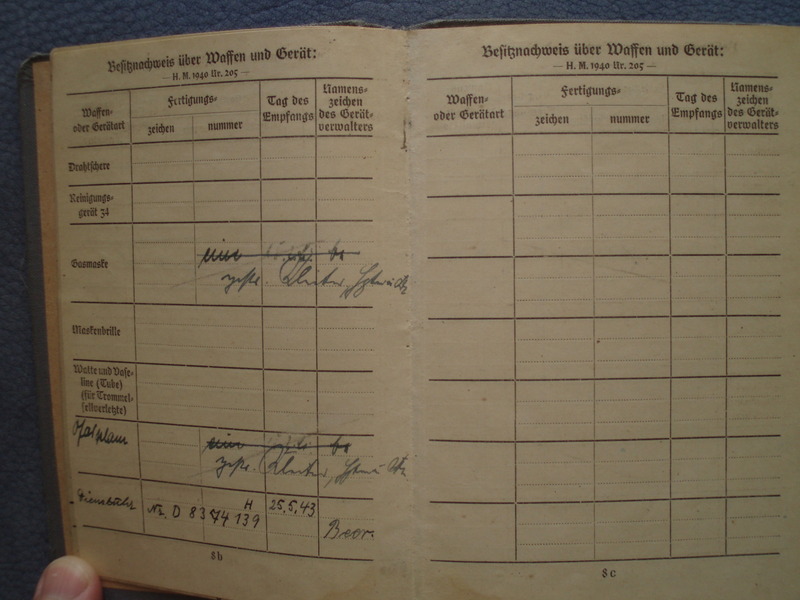 Besitznachweis über Waffen und Gerät:
— H. M. 1940 Nr. 205 —
Waffen- oder Gerätart
Fertigungs-
zeichen
nummer
Tag des Empfangs
Namens-
zeichen
des Gerät-
verwalters
Drahtschere
Reinigungs-
gerät 34
Gasmaske
eine
Maskenbrille
Watte und Vase-
line (Tube)
(für Trommel-
fellverletzte)
eine
Nr. D 8374 139
H
25.5.43
8 b
Besitznachweis über Waffen und Gerät:
— H. M. 1940 Nr. 205 —
Waffen-
oder Gerätart
Fertigungs-
zeichen
nummer
Tag des
Empfangs
Namens-
zeichen
des Gerät-
verwalters
8 c